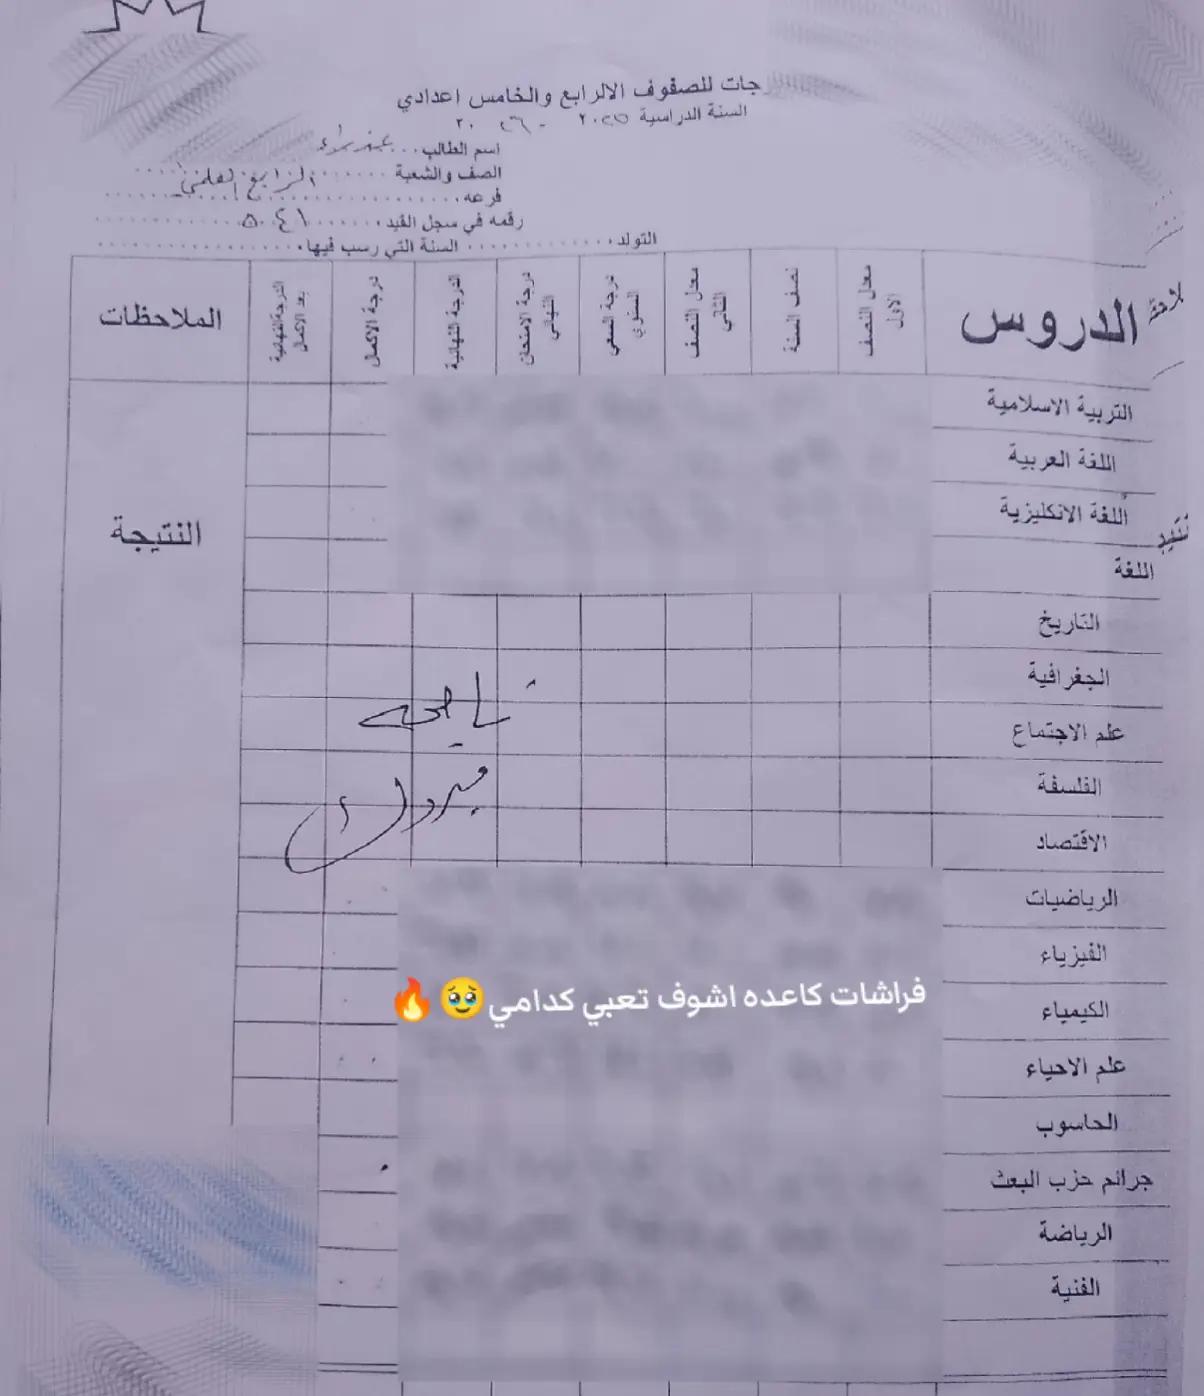 جات للصفوف الالرابع والخامس اعدادي
السنة الدراسية ٢٠٢٥ - ٢٠٢٦
اسم الطالب
الصف والشعبة الرابع العلمي
فرعه
رقمه في سجل القيد ٥٠٤١
التولد السنة التي رسب فيها
الدروس
معدل النصف الاول
نصف السنة
معدل النصف الثاني
درجة السعي السنوي
درجة الامتحان النهائي
الدرجة النهائية
درجة الاكمال
الدرجة النهائية بعد الاكمال
الملاحظات
التربية الاسلامية
اللغة العربية
اللغة الانكليزية
النتيجة
اللغة
التاريخ
الجغرافية
ناجحه
علم الاجتماع
الفلسفة
مبروك
الاقتصاد
الرياضيات
الفيزياء
فراشات كاعده اشوف تعبي كدامي🥹🔥
الكيمياء
علم الاحياء
الحاسوب
جرائم حزب البعث
الرياضة
الفنية